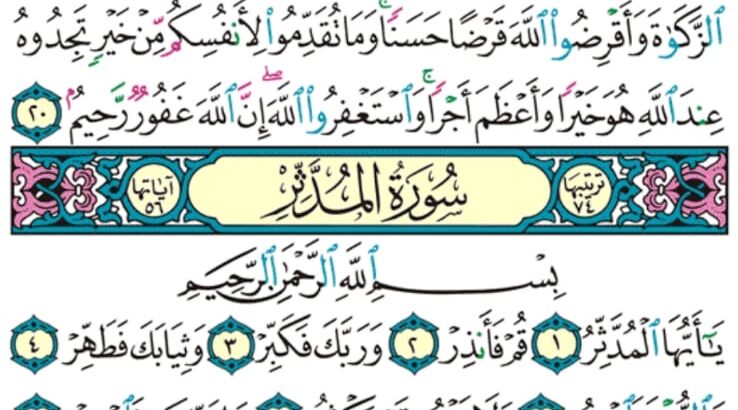 ٱلزَّكَوٰةَ وَأَقۡرِضُواْ ٱللَّهَ قَرۡضًا حَسَنٗاۚ وَمَا تُقَدِّمُواْ لِأَنفُسِكُم مِّنۡ خَيۡرٖ تَجِدُوهُ
عِندَ ٱللَّهِ هُوَ خَيۡرٗا وَأَعۡظَمَ أَجۡرٗاۚ وَٱسۡتَغۡفِرُواْ ٱللَّهَۖ إِنَّ ٱللَّهَ غَفُورٞ رَّحِيمُۢ ٢٠
ترتيبها ٧٤ سُورَةُ المُدَّثِّرِ آياتها ٥٦
بِسۡمِ ٱللَّهِ ٱلرَّحۡمَٰنِ ٱلرَّحِيمِ
يَٰٓأَيُّهَا ٱلۡمُدَّثِّرُ ١ قُمۡ فَأَنذِرۡ ٢ وَرَبَّكَ فَكَبِّرۡ ٣ وَثِيَابَكَ فَطَهِّرۡ ٤